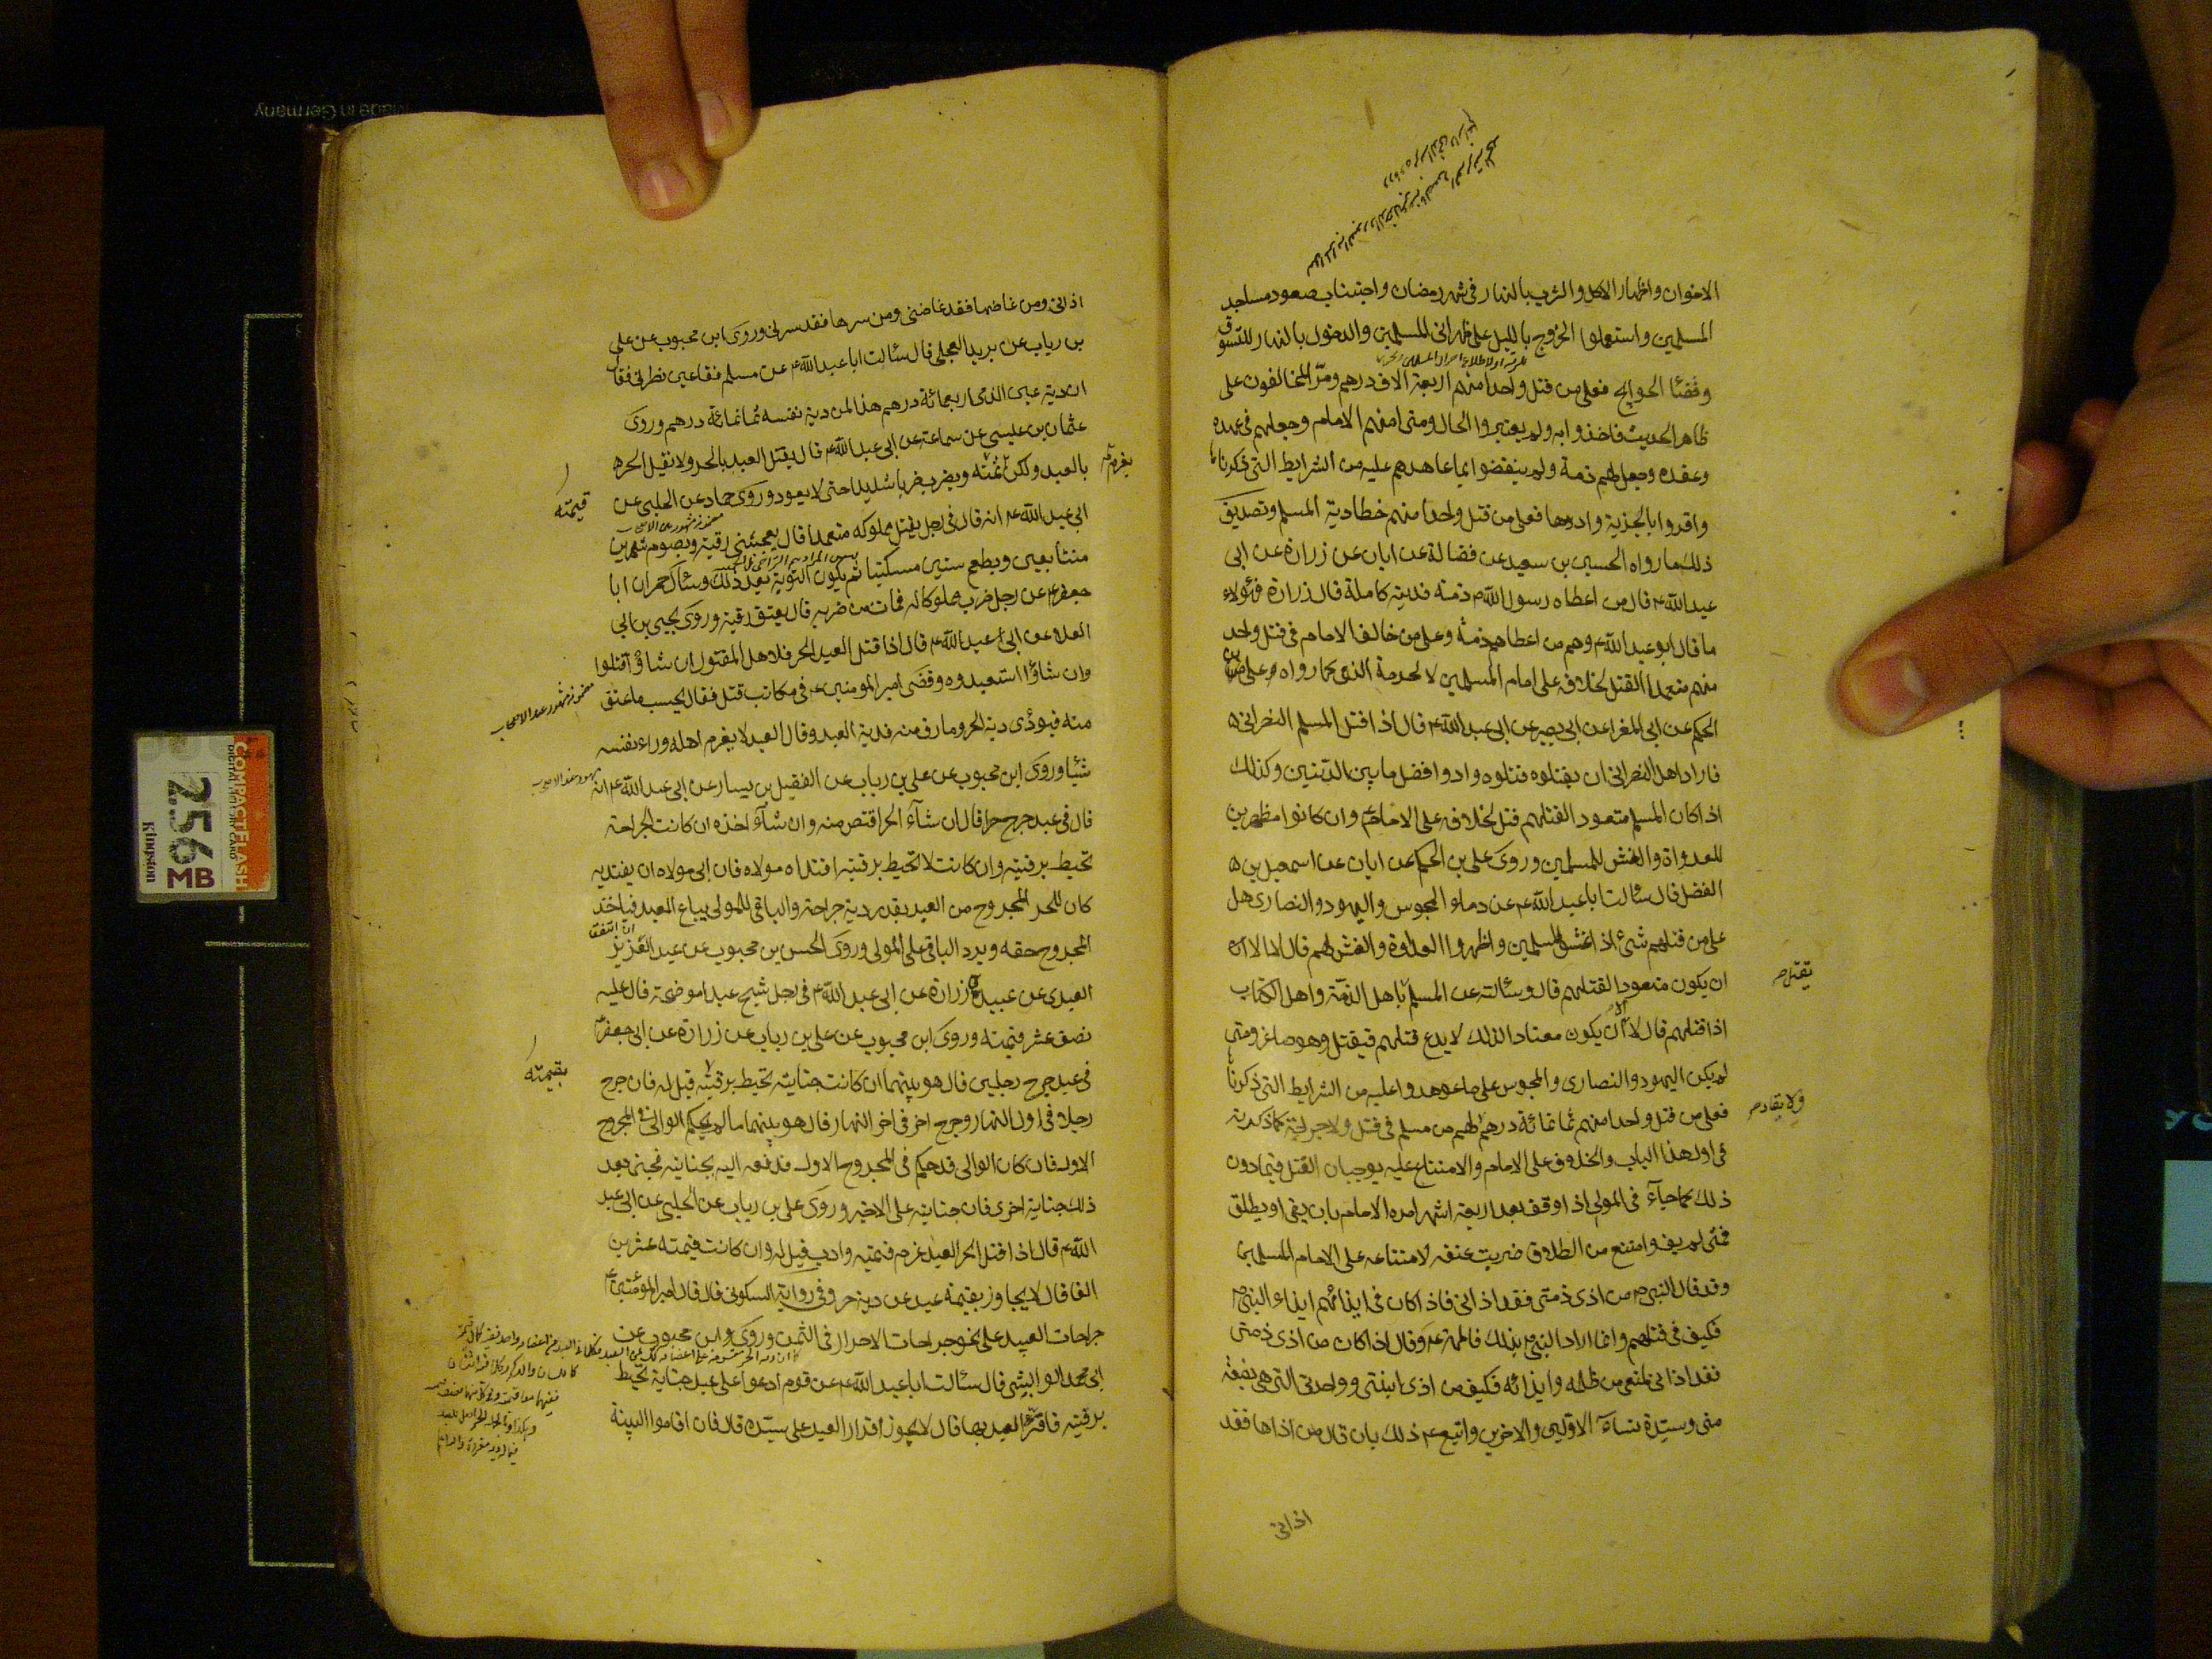 الاخوان واظهار الاكل والشرب بالنهار فى شهر رمضان واجتناب صعود مساجد
المسلمين واستعملوا الخروج بالليل على ظهرانى المسلمين والدخول بالنهار للتسوق
وقضئا الحوايج فعلى من قتل واحدا منهم اربعة الاف درهم ومرّ المخالفون على
ظاهر الحديث فاخذوا به ولم يعتبروا الحال ومتى امنهم الامام وجعلهم فى عهده
وعقده وجعل لهم ذمة ولم ينقضوا ما عاهدهم عليه من الشرايط التى ذكرناها
واقروا بالجزية وادوها فعلى من قتل واحدا منهم خطا دية المسلم وتصديق
ذلك ما رواه الحسين بن سعيد عن فضالة عن ابان عن زرارة عن ابى
عبد الله ع قال من اعطاه رسول الله ص ذمة فديته كاملة قال زرارة فهؤلاء
ما قال ابو عبد الله ع وهم من اعطاهم ذمة وعلى من خالف الامام فى قتل واحد
منهم متعمدا القتل لخلافه على امام المسلمين لا لحرمة الذمى كما رواه على بن
الحكم عن ابى المغرا عن ابى بصير عن ابى عبد الله ع قال اذا قتل المسلم النصرانى
فاراد اهل النصرانى ان يقتلوه قتلوه وادوا فضل ما بين الديتين وكذلك
اذا كان المسلم متعود القتلهم قتل لخلافه على الامام ع وان كانوا مظهرين
للعدواة والغش للمسلمين وروى على بن الحكم عن ابان عن اسمعيل بن
الفضل قال سالت ابا عبد الله ع عن دماء المجوس واليهود والنصارى هل
على من قتلهم شىء اذا غشوا المسلمين واظهروا العداوة والغش لهم قال لا الا ان
ان يكون متعود القتلهم قال وسئالته عن المسلم باهل الذمة واهل الكتاب
يقتل
اذا قتلهم قال لا الا ان يكون معتادا لذلك لا يدع قتلهم فيقتل وهو صاغر ومتى
لم يكن اليهود والنصارى والمجوس على ما عوهدوا عليه من الشرايط التى ذكرناها
فعلى من قتل واحدا منهم ثمانمائة درهم لهم من مسلم فى قتل ولا جراحة كما ذكرته
ولا يقاد
فى اول هذا الباب والخلاف على الامام والامتناع عليه يوجبان القتل فيما دون
ذلك كما جآء فى المولى اذا وقف بعد اربعة اشهر امره الامام بان يفى او يطلق
فمتى لم يف وامتنع من الطلاق ضربت عنقه لامتناعه على الامام المسلمين
وقد قال النبى ص من اذى ذمتى فقد اذانى فاذا كان فى ايذائهم ايذاء النبى ص
فكيف فى قتلهم وانما اراد النبى ص بذلك فاطمة ع وقال اذا كان من اذى ذمتى
فقد اذانى لمنعى من ظلمه وايذائه فكيف من اذى ابنتى وواحدتى التى هى بضعة
منى وسيدة نسآء الاولين والاخرين واتبع ع ذلك بان قال من اذاها فقد
اذانى
اذانى ومن غاضها فقد غاضنى ومن سرها فقد سرنى وروى ابن محبوب عن على
بن رياب عن بريد العجلى قال سئالت ابا عبد الله ع عن مسلم فقا عين نصرانى فقال
ان دية عين الذمى اربعمائة درهم هذا لمن دية نفسه ثمانمائة درهم وروى
عثمان بن عيسى عن سماعة عن ابى عبد الله ع قال يقتل العبد بالحر ولا يقتل الحر
بالعبد ولكن ثمنه ويضرب ضربا شديدا حتى لا يعود وروى حماد عن الحلبى عن
يغرم
قيمته
ابى عبد الله ع انه قال فى رجل يقتل مملوكه متعمدا قال يعجبنى رقبة ويصوم شهرين
متتابعين ويطعم ستين مسكينا ثم يكون التوبة بعد ذلك وسئال حمران ابا
جعفر ع عن رجل ضرب مملوكا له فمات من ضربه قال يعتق رقبة وروى يحيى بن ابى
العلا عن ابى عبد الله ع قال اذا قتل العبد الحر فلاهل المقتول ان شاؤا قتلوا
وان شاؤا استعبدوه وقضى امير المؤمنين ع فى مكاتب قتل فقال يحسب ما عتق
منه فيؤدى دية الحر وما رق منه فدية العبد وقال العبد لا يغرم اهله وراء نفسه
شيئا وروى ابن محبوب عن على بن رياب عن الفضيل بن يسار عن ابى عبد الله ع انه
قال فى عبد جرح حرا قال ان شآء الحر اقتص منه وان شآء اخذه ان كانت الجراحة
تحيط برقبته وان كانت لا تحيط برقبته افتداه مولاه فان ابى مولاه ان يفتديه
كان للحر المجروح من العبد بقدر دية جراحته والباقى للمولى يباع العبد فياخذ
المجروح حقه ويرد الباقى على المولى وروى الحسن بن محبوب عن عبد العزيز
العبدى عن عبيد زرارة عن ابى عبد الله ع فى رجل شج عبدا موضحة قال عليه
نصف عشر قيمته وروى ابن محبوب عن على بن رياب عن زرارة عن ابى جعفر ع
فى عبد جرح رجلين قال هو بينهما ان كانت جنايته تحيط برقبته قيل له فان جرح
بقيمته
رجلا فى اول النهار وجرح اخر فى اخر النهار قال هو بينهما ما لم يحكم الوالى فى المجروح
الاول فان كان الوالى قد حكم فى المجروح الاول فدفعه اليه بجنايته فجنى بعد
ذلك جناية اخرى فان جنايته على الاخير وروى على بن رياب عن الحلبى عن ابى عبد
الله ع قال اذا قتل الحر العبد غرم قيمته وادب قيل له وان كانت قيمته عشرين
الفا قال لا يجاوز بقيمة عبد عن دية حر وفى رواية السكونى قال قال امير المؤمنين ع
جراحات العبيد على نحو جراحات الاحرار فى الثمن وروى ابن محبوب عن
ابى محمد الوابشى قال سئالت ابا عبد الله ع عن قوم ادعوا على عبد جناية تحيط
برقبته فاقر العبد بها قال لا يجوز اقرار العبد على سيده قال فان اقاموا البينة
Made in Germany
COMPACTFLASH
256 MB
Kingston